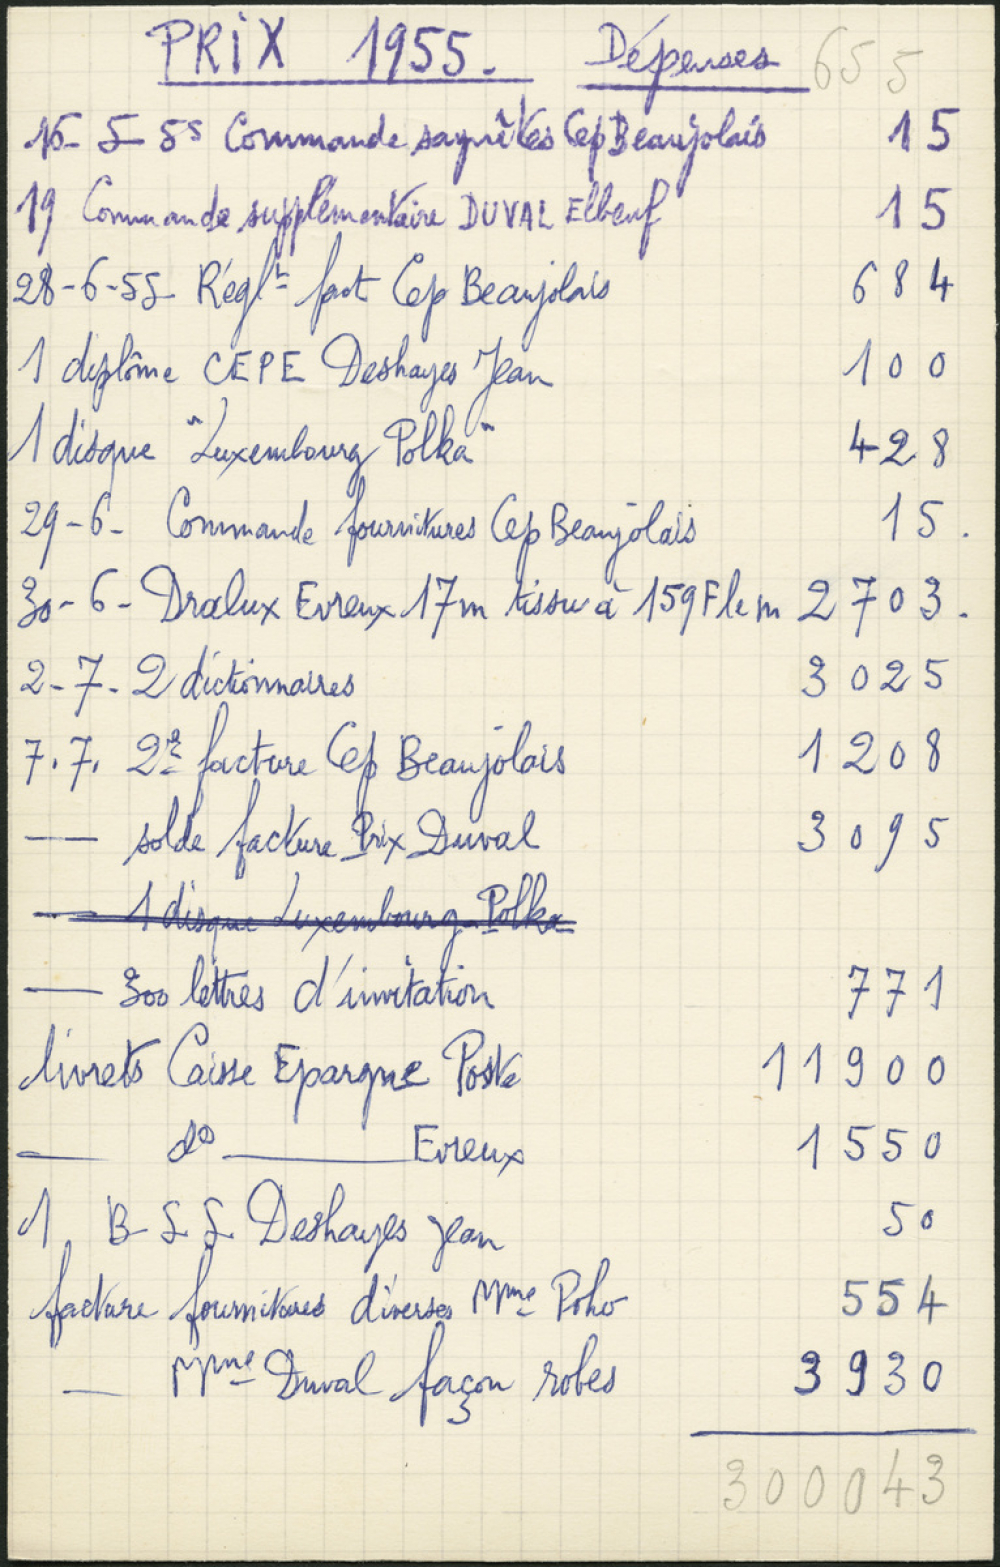 PRIX 1955. Dépenses 655
16-5-55 Commande saynêtes Cep Beaujolais 15
19 Commande supplémentaire DUVAL Elbeuf 15
28-6-55 Réglt fact Cep Beaujolais 684
1 diplôme CEPE Deshayes Jean 100
1 disque "Luxembourg Polka" 428
29-6- Commande fournitures Cep Beaujolais 15.
30-6- Dralux Evreux 17m tissu à 159F le m 2703.
2-7- 2 dictionnaires 3025
7.7. 2e facture Cep Beaujolais 1208
— solde facture Prix Duval 3095
— 1 disque Luxembourg Polka
— 300 lettres d'invitation 771
livrets Caisse Epargne Poste 11900
— do — Evreux 1550
1 B S S Deshayes Jean 50
facture fournitures diverses Mme Poho 554
— Mme Duval façon 3 robes 3930
300043